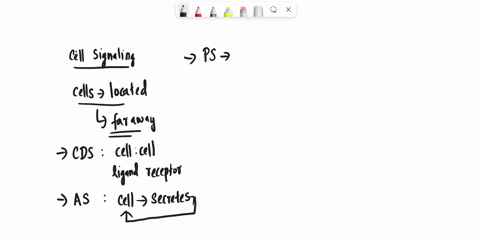 Cell Signaling
cells → located
↳ far away
→ CDS : cell : cell
ligand receptor
→ AS : cell → secretes
→ PS →